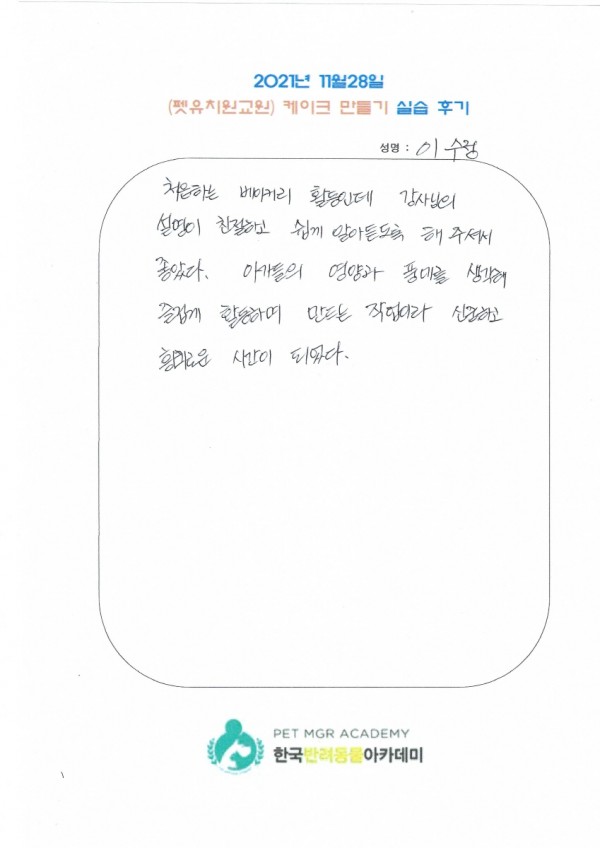 2021년 11월28일
(펫유치원교원) 케이크 만들기 실습 후기
성명 : 이 수정
처음하는 베이커리 활동인데 강사님의
설명이 친절하고 쉽게 알아듣도록 해 주셔서
좋았다. 아가들의 영양과 풍미를 생각해
즐겁게 활동하며 만드는 작업이라 신선하고
흥미로운 시간이 되었다.
PET MGR ACADEMY
한국반려동물아카데미